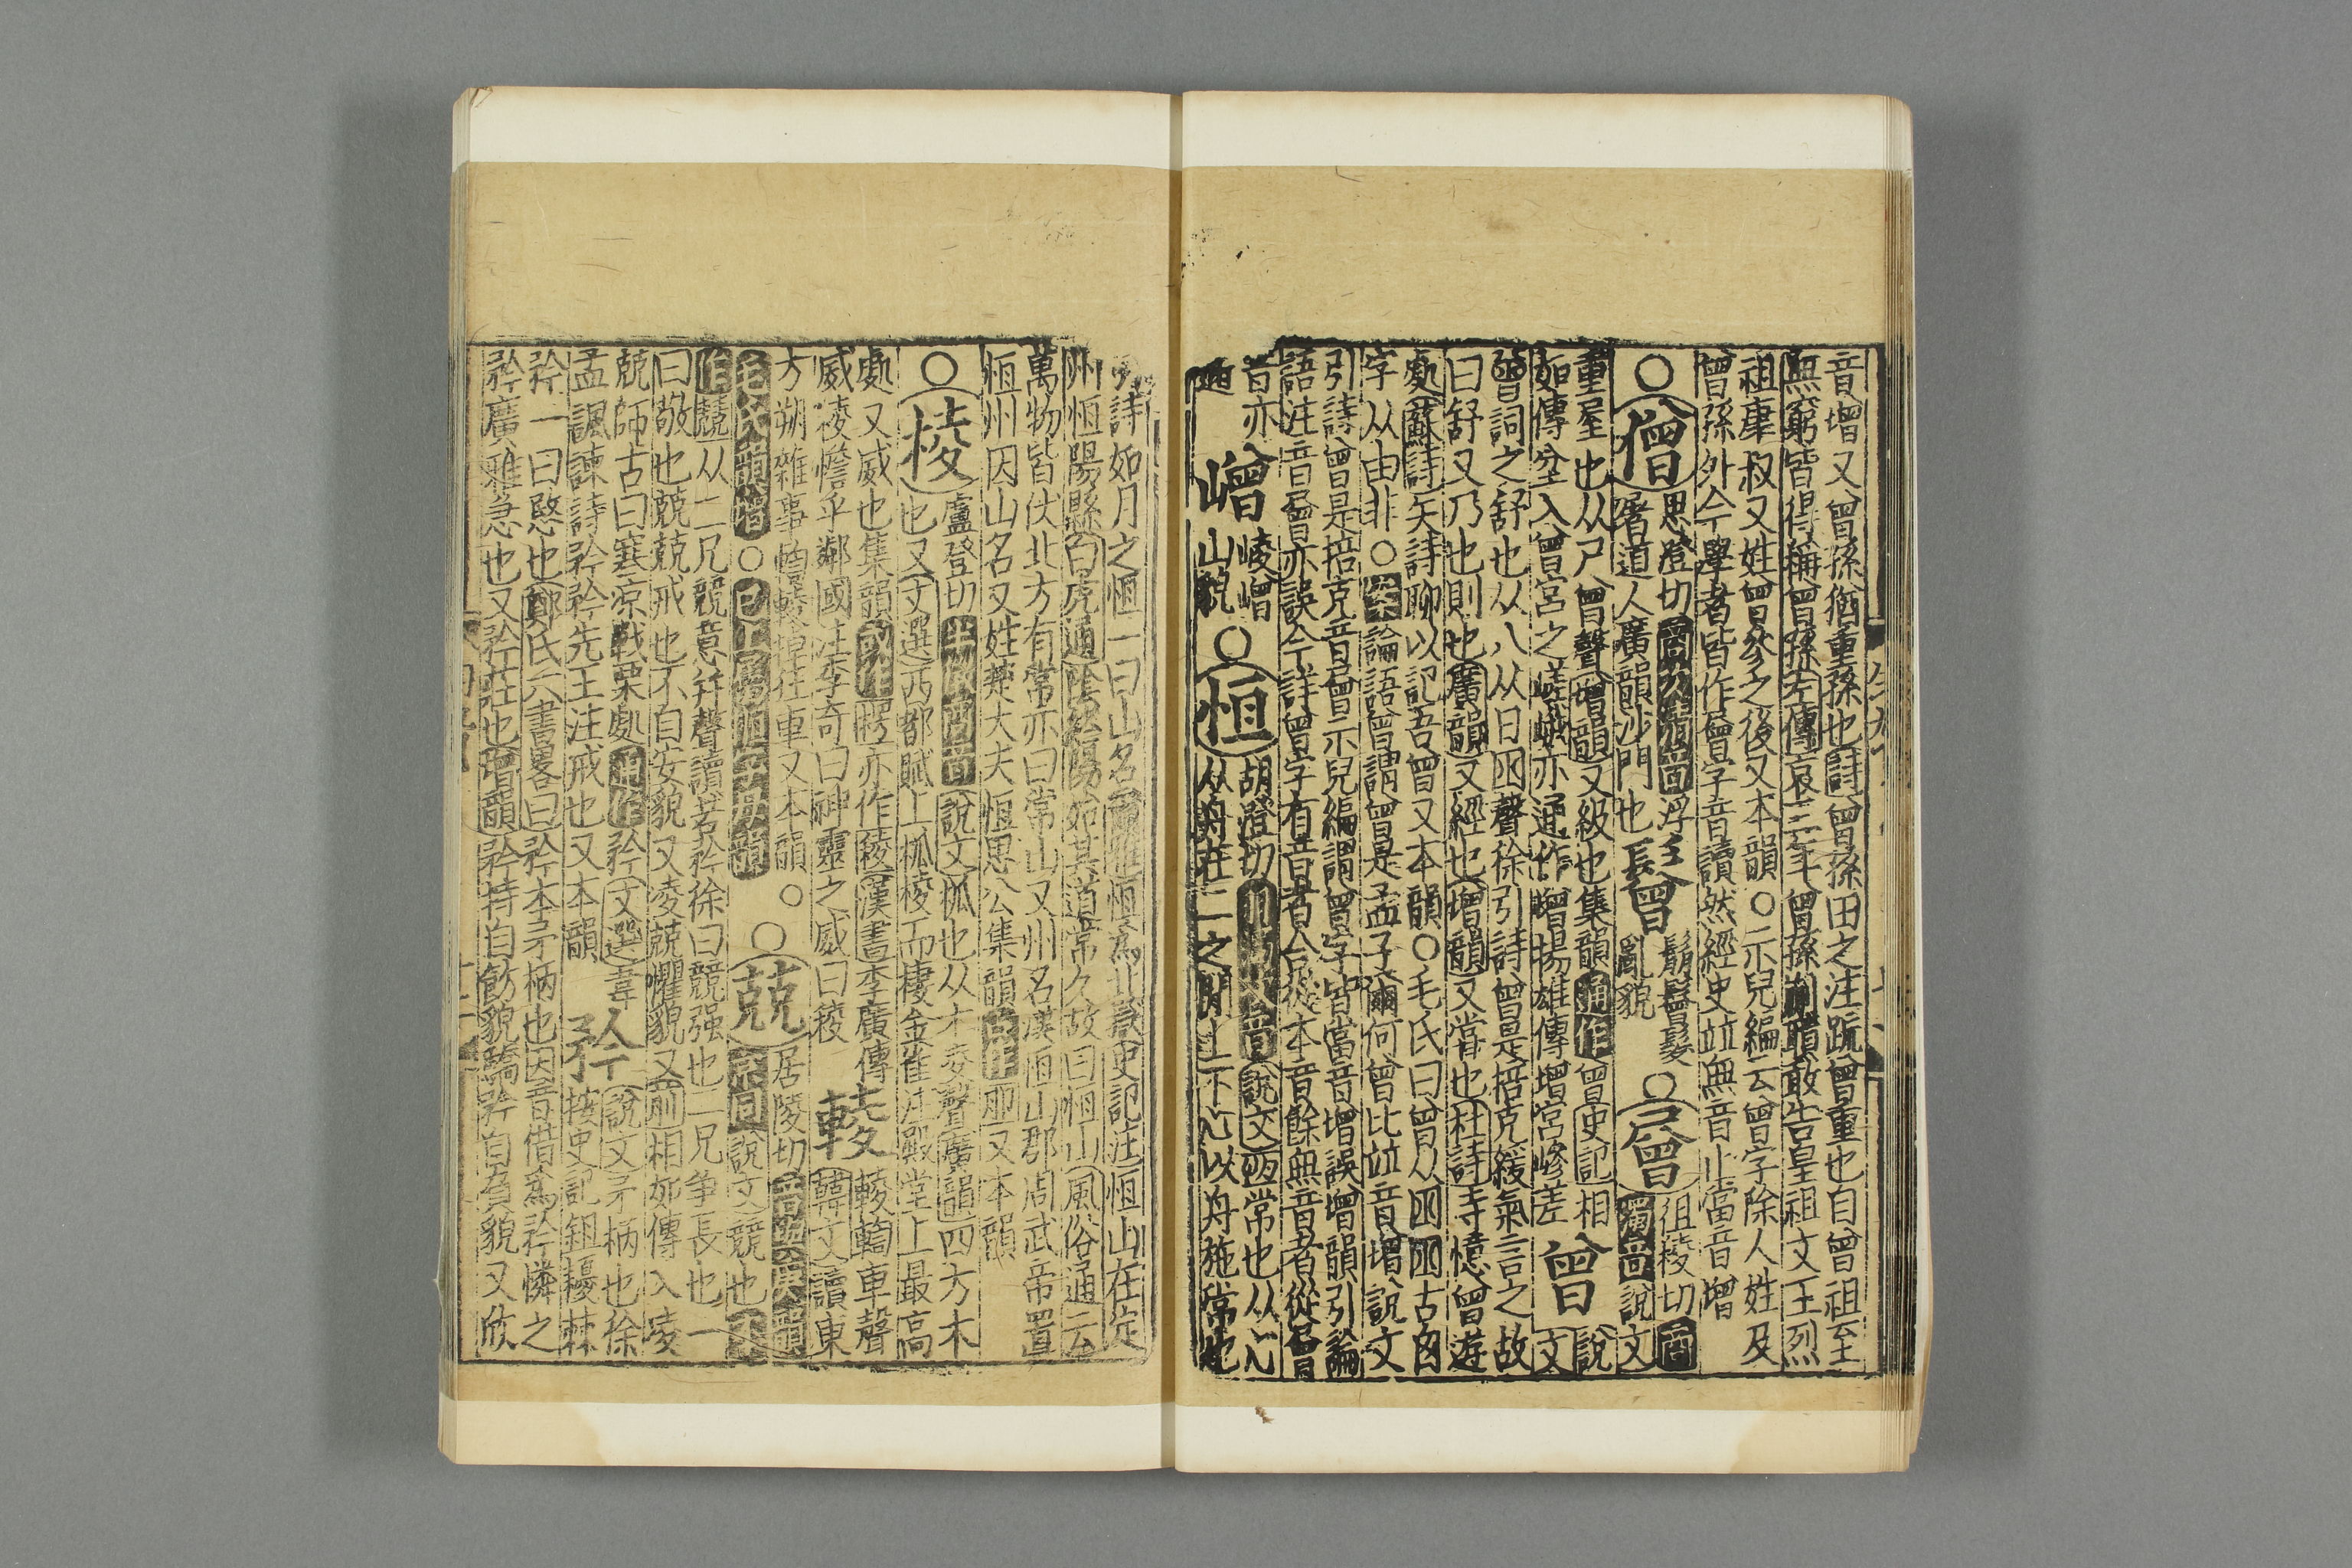 音增又曾孫猶重孫也詩曾孫田之注䟽曾重也自曾祖至
無窮皆得稱曾孫左傳哀三年曾孫蒯聵敢告皇祖文王烈
祖康叔又姓曾參之後又本韻○示兒編云曾字除人姓及
曾孫外今學者皆作曾字音讀然經史並無音止當音增
○僧思登切商次清音浮屠道人廣韻沙門也鬙鬅鬙髮亂貌○層徂稜切商濁音說文
重屋也从尸曾聲增韻又級也集韻通作曾史記相
如傳坌入曾宮之嵯峨亦通作增揚雄傳增宮嵾差曾說文
曾詞之舒也从八从曰囪聲徐引詩曾是掊克緩氣言之故
曰舒又乃也則也廣韻又經也增韻又嘗也杜詩寺憶曾遊
處蘇詩矢詩聊以記吾曾又本韻○毛氏曰曾从囪囪古囱
字从由非○案論語曾謂曾是孟子爾何曾比並音增說文
引詩曾是掊克音層曾示兒編謂曾字皆當音增誤增韻引論
語注音層曾亦誤今詳曾字有音者合從本音餘無音者從層
音亦通嶒崚嶒山貌○恒胡登切說文恆常也从心从舟在二之間上下心以舟施常也
引詩如月之恒一曰山名爾雅恒為北嶽史記注恒山在定
州恒陽縣白虎通陰終陽始其道常久故曰恒山風俗通云
萬物皆伏北方有常亦曰常山又州名漢恒山郡周武帝置
恒州因山名又姓楚大夫恒思公集韻或作又本韻
○稜盧登切半徵商音說文柧也从木夌聲廣韻四方木
也又文選西都賦上柧稜而棲金雀注殿堂上最高
處又威也集韻或作楞亦作稜漢書李廣傳
威稜憺乎鄰國注李奇曰神靈之威曰稜輘輘輷車聲韓文讀東
方朔雜事輘掉狂車又本韻○
毛氏韻增○已上屬恒字母韻○兢居陵切角清音說文競也
作競从二兄競意丰聲讀若矜徐曰競强也二兄爭長也一
曰敬也兢兢戒也不自安貌又凌兢懼貌又前相如傳入凌
兢師古曰寒凉戰栗處通作矜文選韋
孟諷諫詩矜矜先王注戒也又本韻矜說文矛柄也徐按史記鉏櫌棘
矜一曰愍也鄭氏六書畧曰矜本矛柄也因音借為矜憐之
矜廣雅急也又矜莊也增韻矜持自飾貌驕矜自負貌又欣